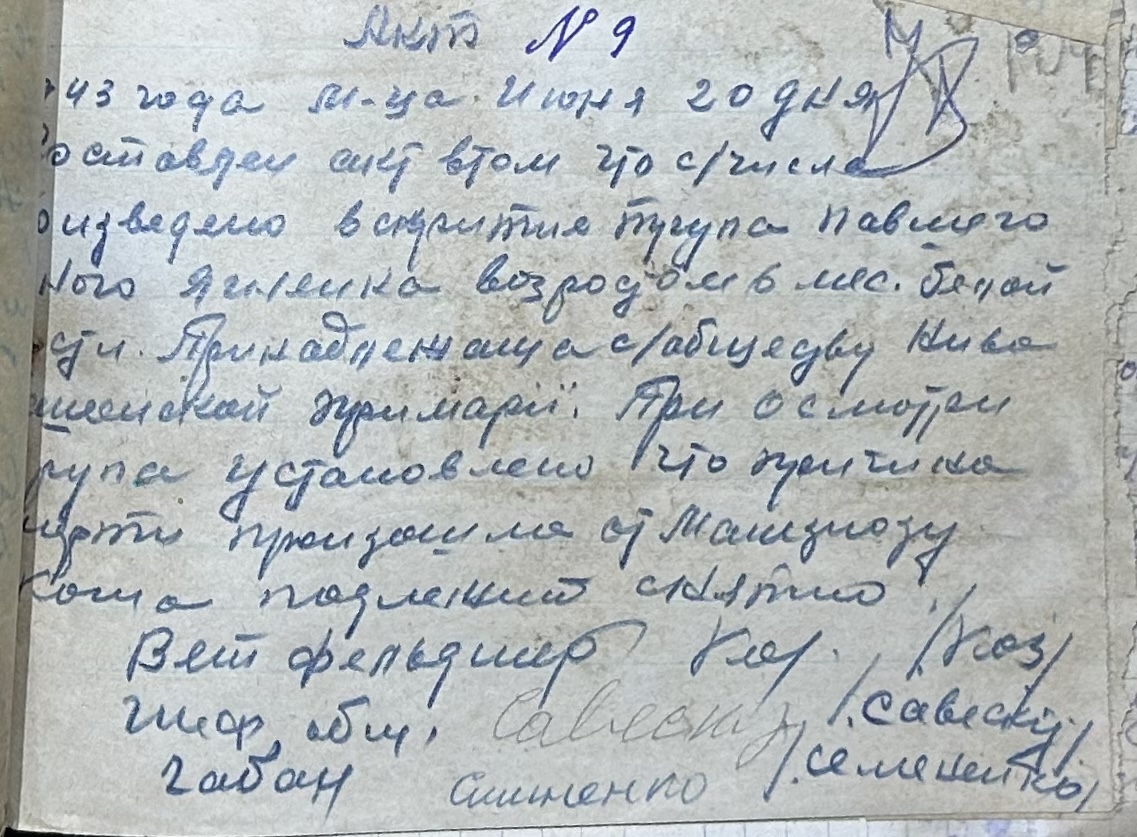 Акт № 9
43 года м-ца Июня 20 дня
оставлен акт втом что с/числа
оизведено вскрития трупа павшего
ного ягненка возростом 6 мес. белой
сти. Принадлежаща с/обществу Нива
шенской примарії. При осмотри
рупа установлено что причина
мерти произошла от
Кожа подлежит снятию
Вет фельдшер /Коз/
Шеф, общ. Савеску /Савеску/
Чабан /Семененко/